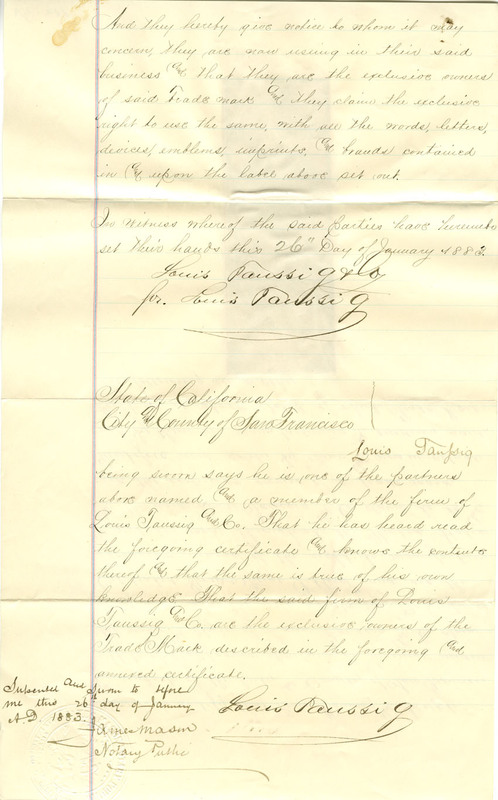 And they hereby give notice to whom it may
concern, they are now using in their said
business and that they are the exclusive owners
of said Trade mark and they claim the exclusive
right to use the same, with all the words, letters,
devices, emblems, imprints, and brands contained
in and upon the label above set out.
In witness whereof the said parties have hereunto
set their hands this 26" Day of January 1883.
Louis Taussig & Co
for. Louis Taussig
State of California
City and County of San Francisco
Louis Taussig
being sworn says he is one of the partners
above named and a member of the firm of
Louis Taussig and Co. That he has heard read
the foregoing certificate and knows the contents
thereof and that the same is true of his own
knowledge That the said firm of Louis
Taussig and Co. are the exclusive owners of the
Trade Mark described in the foregoing and
annexed certificate.
Subscribed and sworn to before
me this 26 day of January
A.D. 1883.
Louis Taussig
James Mason
Notary Public